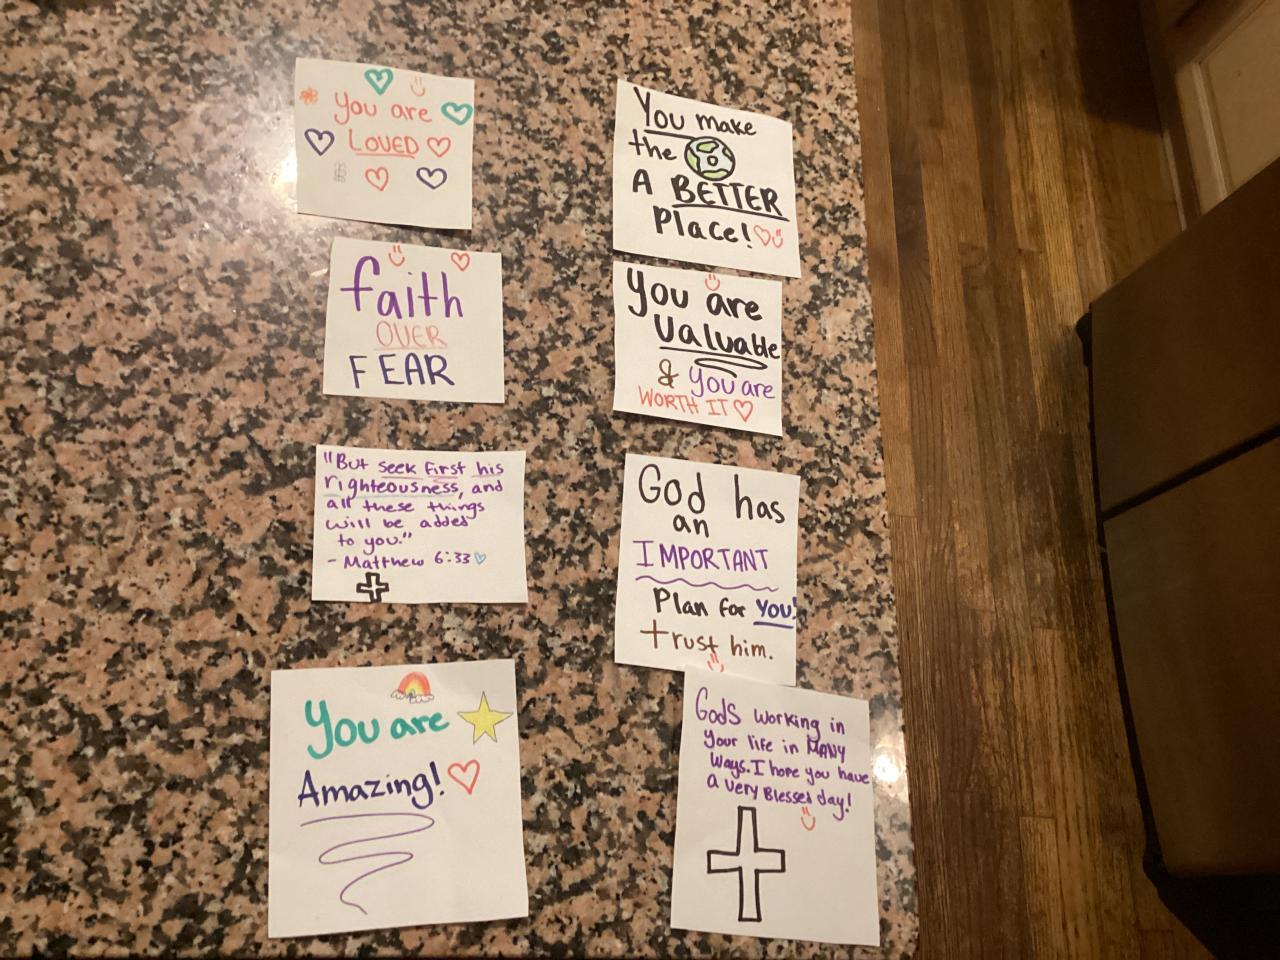 You are
LOVED
faith
OVER
FEAR
"But seek first his
righteousness, and
all these things
will be added
to you."
- Matthew 6:33
You are
Amazing!
You make
the
A BETTER
Place!
You are
valuable
& you are
WORTH IT
God has
an
IMPORTANT
Plan for YOU!
trust him.
Gods working in
your life in MANY
ways. I hope you have
a very Blessed day!